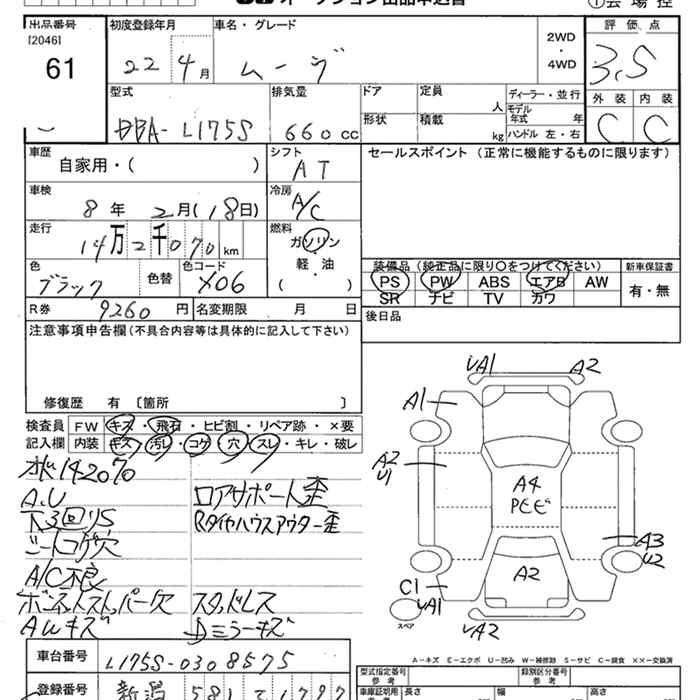 オークション出品申込書
①会場控
出品番号 初度登録年月 車名・グレード 評価点
[2046]
61 22 4月 ムーヴ 2WD・4WD 3.5
外装 内装
C C
型式 排気量 ドア 定員 人 ディーラー・並行
DBA-L175S 660cc 形状 積載 kg モデル年式 年
ハンドル 左・右
車歴 シフト セールスポイント (正常に機能するものに限ります)
自家用・( ) AT
車検 冷房
8年 2月(18日) A/C
走行 燃料
14万2千070km ガソリン
軽・油
( )
色 色替 色コード
ブラック X06
装備品(純正品に限り○をつけてください) 新車保証書
PS PW ABS エアB AW 有・無
SR ナビ TV カワ
R券 9260円 名変期限 月 日 後日品
注意事項申告欄(不具合内容等は具体的に記入して下さい)
修復歴 有 〔箇所 〕
検査員記入欄 FW キズ・飛石・ヒビ割・リペア跡・×要
内装 キズ・汚レ・コゲ・穴・スレ・キレ・破レ
142070
A.U ロアサポート歪
下3回りS Rタイヤハウスアウター歪
シートコゲ穴
A/C不良
スタッドレス
AWキズ ミラーキズ
UA1 A2
A1
A2
U1
A4
A3
U2
A2
C1
UA1
スペア
UA2
A-キズ E-エクボ U-凹み W-補修跡 S-サビ C-腐食 ××-交換済
車台番号 L175S-0308575
型式指定番号 参考 類別区分番号 参考
登録番号 新潟 581
車庫証明用 長さ 幅 高さ